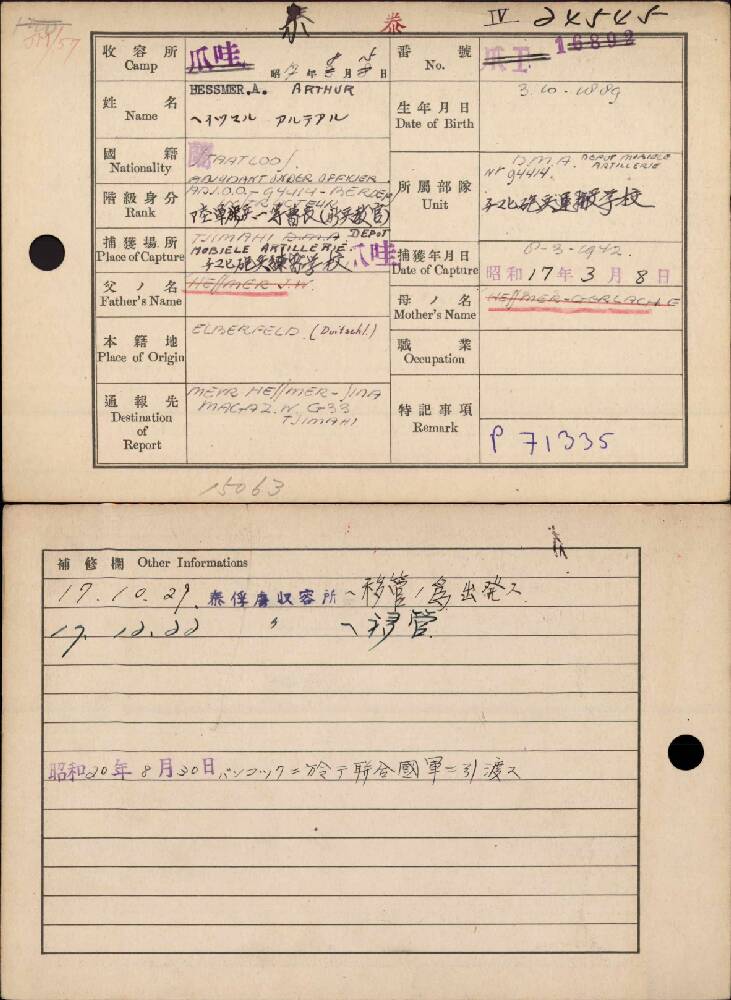 泰 泰 IV 24545
收容所 Camp 爪哇 昭17年8月5日
番號 No. 爪I 16892
姓名 Name HESSMER.A. ARTHUR
ヘイツマル アルテアル
生年月日 Date of Birth 3.10.1889
國籍 Nationality
ADJUDANT ONDER OFFICIER
階級身分 Rank
所屬部隊 Unit D.M.A. DEPOT MOBIELE ARTILLERIE
Nr 94414.
捕獲場所 Place of Capture TJIMAHI D.M.A DEPOT
MOBIELE ARTILLERIE 爪哇
捕獲年月日 Date of Capture 8-3-1942.
昭和17年3月8日
父ノ名 Father's Name HESSMER J.W.
母ノ名 Mother's Name HESSMER-GERLACH E
本籍地 Place of Origin ELBERFELD. (Duitschl.)
職業 Occupation
通報先 Destination of Report MEVR HESSMER-SINA
MAGAZ.W. G33
TJIMAHI
特記事項 Remark P 71335
15063
補修欄 Other Informations
17.10.29. 泰俘虜収容所ヘ移管ノ為出発ス
17.12.22 〃 ヘ移管
昭和20年8月30日バンコックニ於テ聯合國軍ニ引渡ス